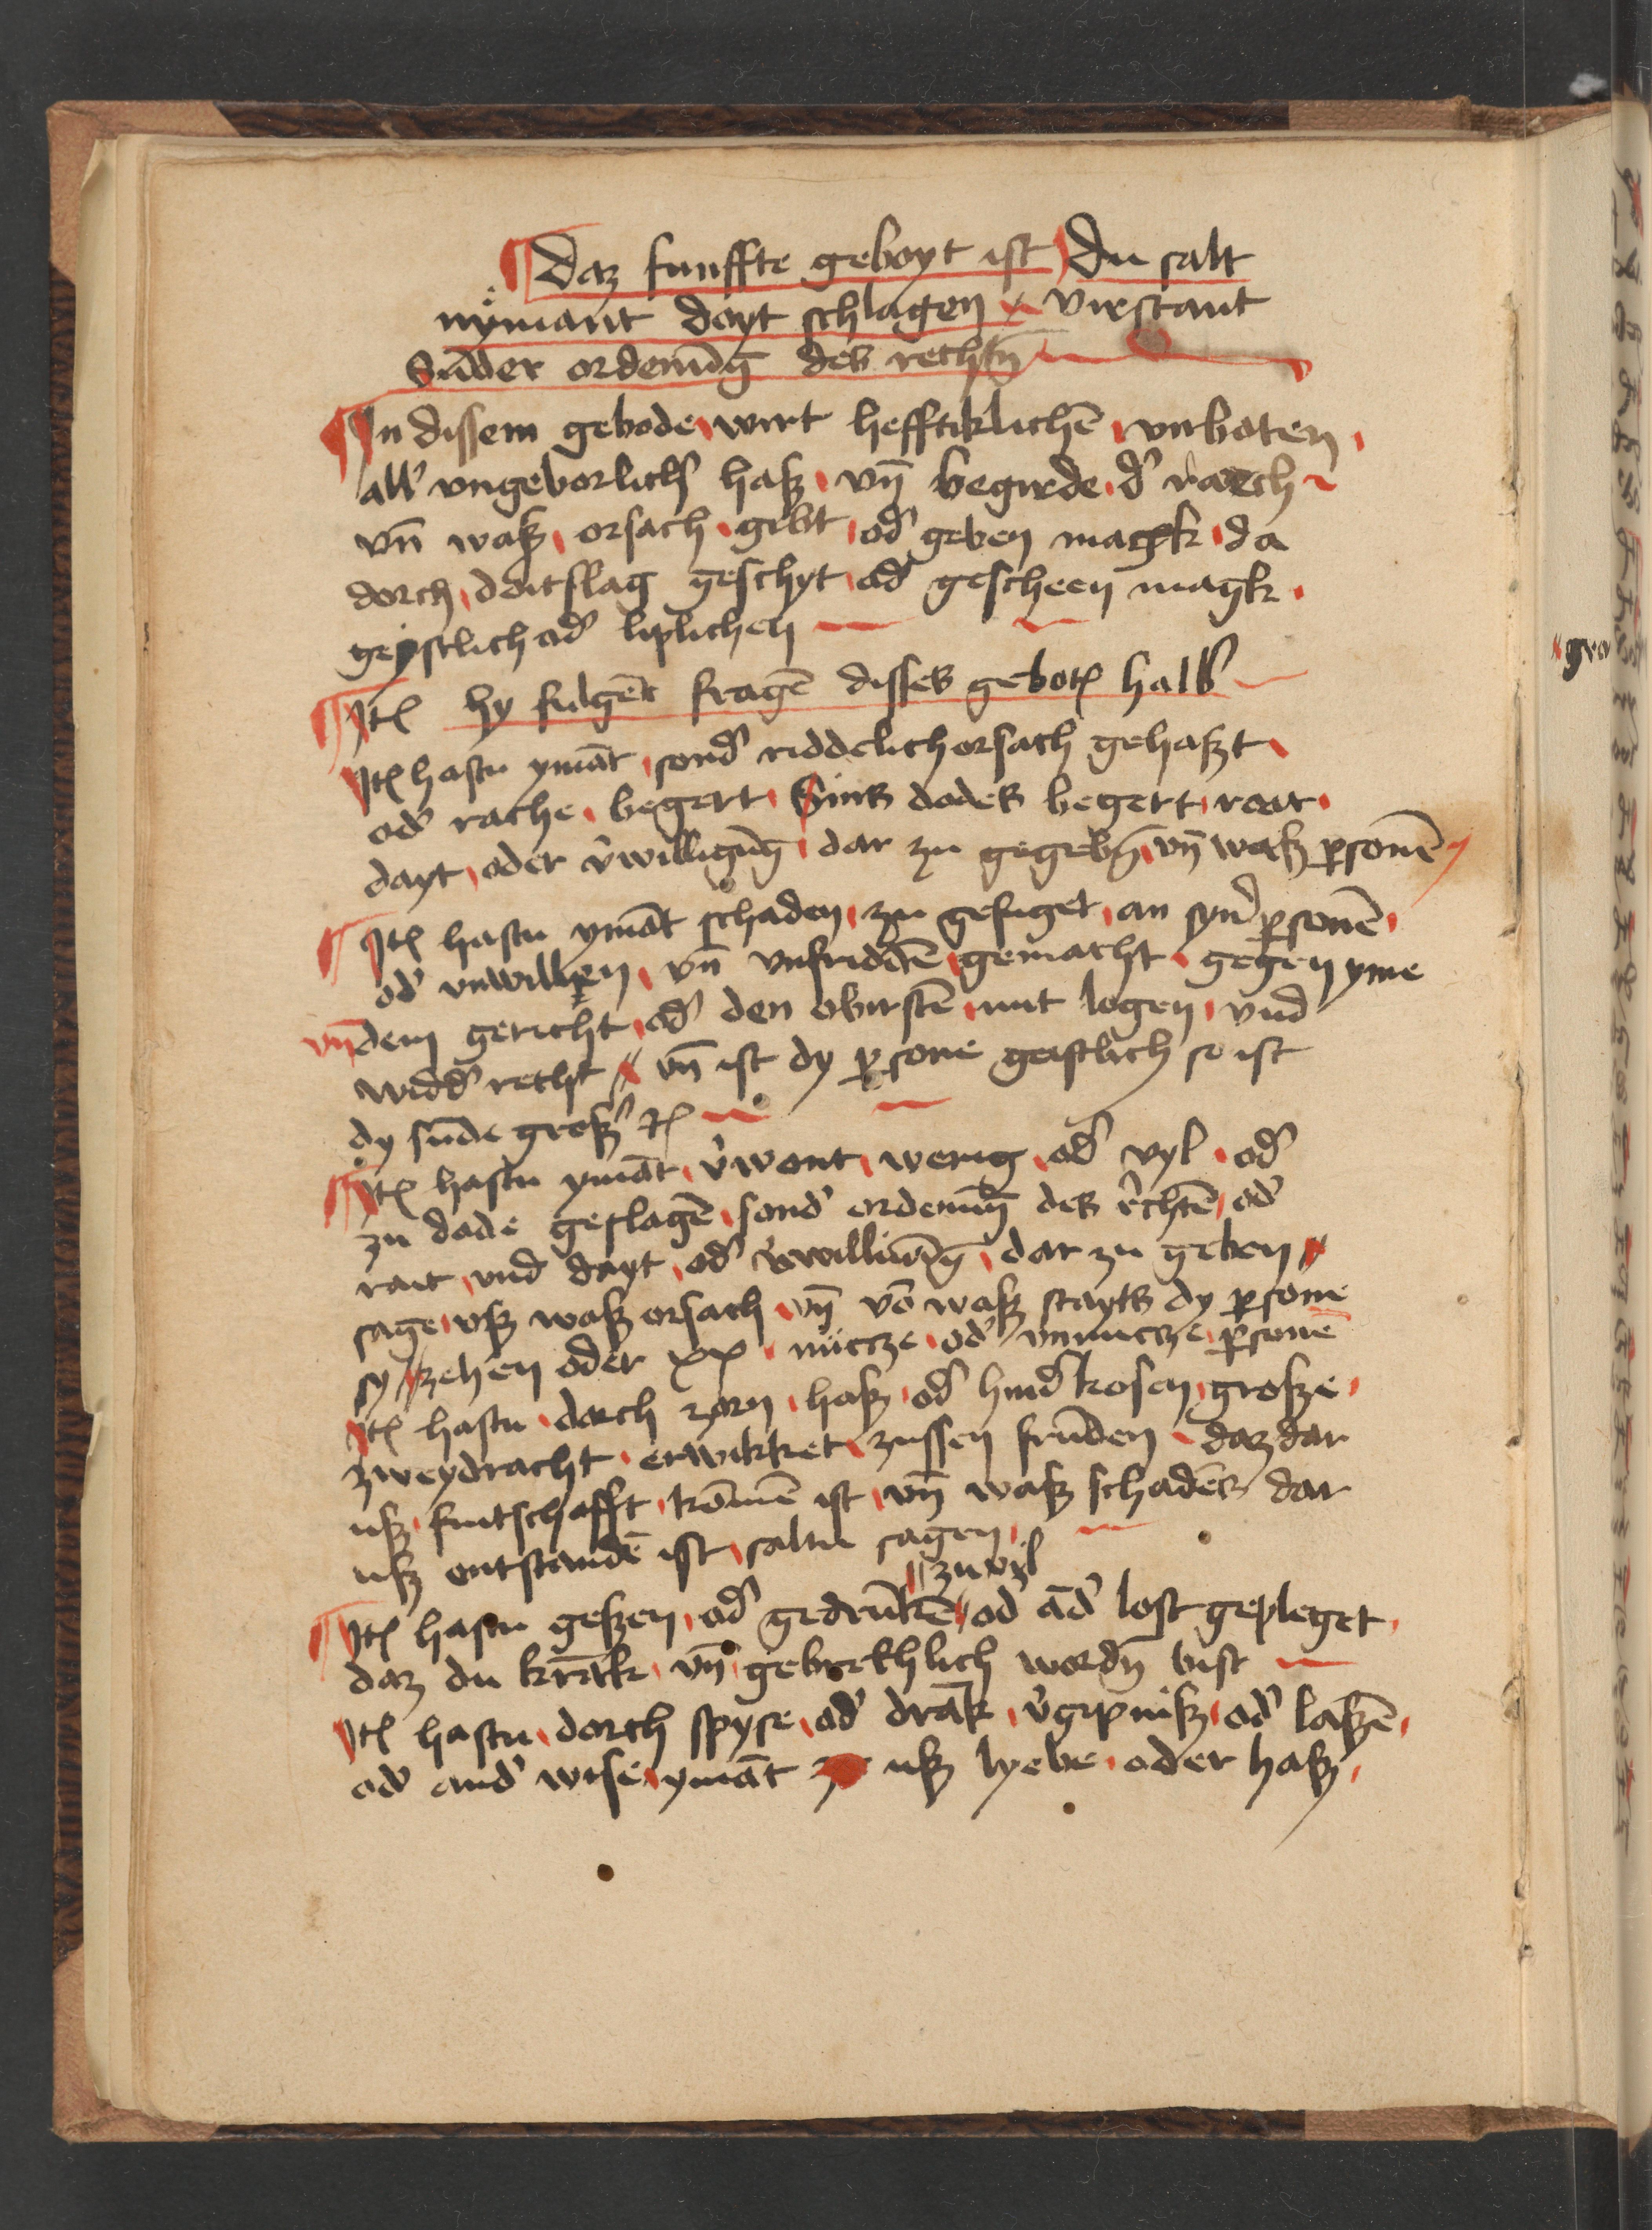 Daz funffte geboyt ist Du salt
nymant doyt schlagen virstant
Sūder ordenūg des rechtn̄
In dissem gebode wirt hefftiklichē virboten
all' vngeborlich' haß vn̄ begirde d' raech
vn̄ waß orsach gibt od' geben magk da
dorch doitslag geschyt od' gescheen magk
geystlich od' liplichen
Itē hy fulgēt fragē disses gebotz halb'
Itē hastu ymāt sond' riddelich orsach gehaßt
od' rache begert Sins dodes begert raat
dayt oder v'willigūg dar zu gegebn̄ vn̄ waß psonē
Itē hastu ymāt schaden zu gefuget an syn' psonē
od' vnwillen vn̄ vnfriddē gemacht gegen yme
vn̄ dem gericht od' den obirstē mit logen vnd
widd' recht vn̄ ist dy psone geistlich so ist
dy sūde groß' etc
Itē hastu ymāt v'wont wenig od' vyl od'
zu dode geslagē sond' ordenūg des rechtē od'
rait vnd dayt od' v'willūg dar zu geben
sage vß waß orsach vn̄ vō waß stayts dy psone
sy zehen oder xx nutcze od' vnnutcze psonē
Itē hastu dorch zorn haß od' hind'kosen große
zweydracht erwikket zussen frūden daz dar
uß fintschafft kōmē ist vn̄ waß schadēs dar
uß entstandē ist saltu sagen
zu vyl
Itē hastu geßen od' gedrūkē od' ād' lost gepleget
daz du krāk vn̄ gebrechlich wordn̄ bist
Itē hastu dorch spyse od' drāk v'gipniß od' laßē
od' and' wise ymāt uß lyebe oder haß